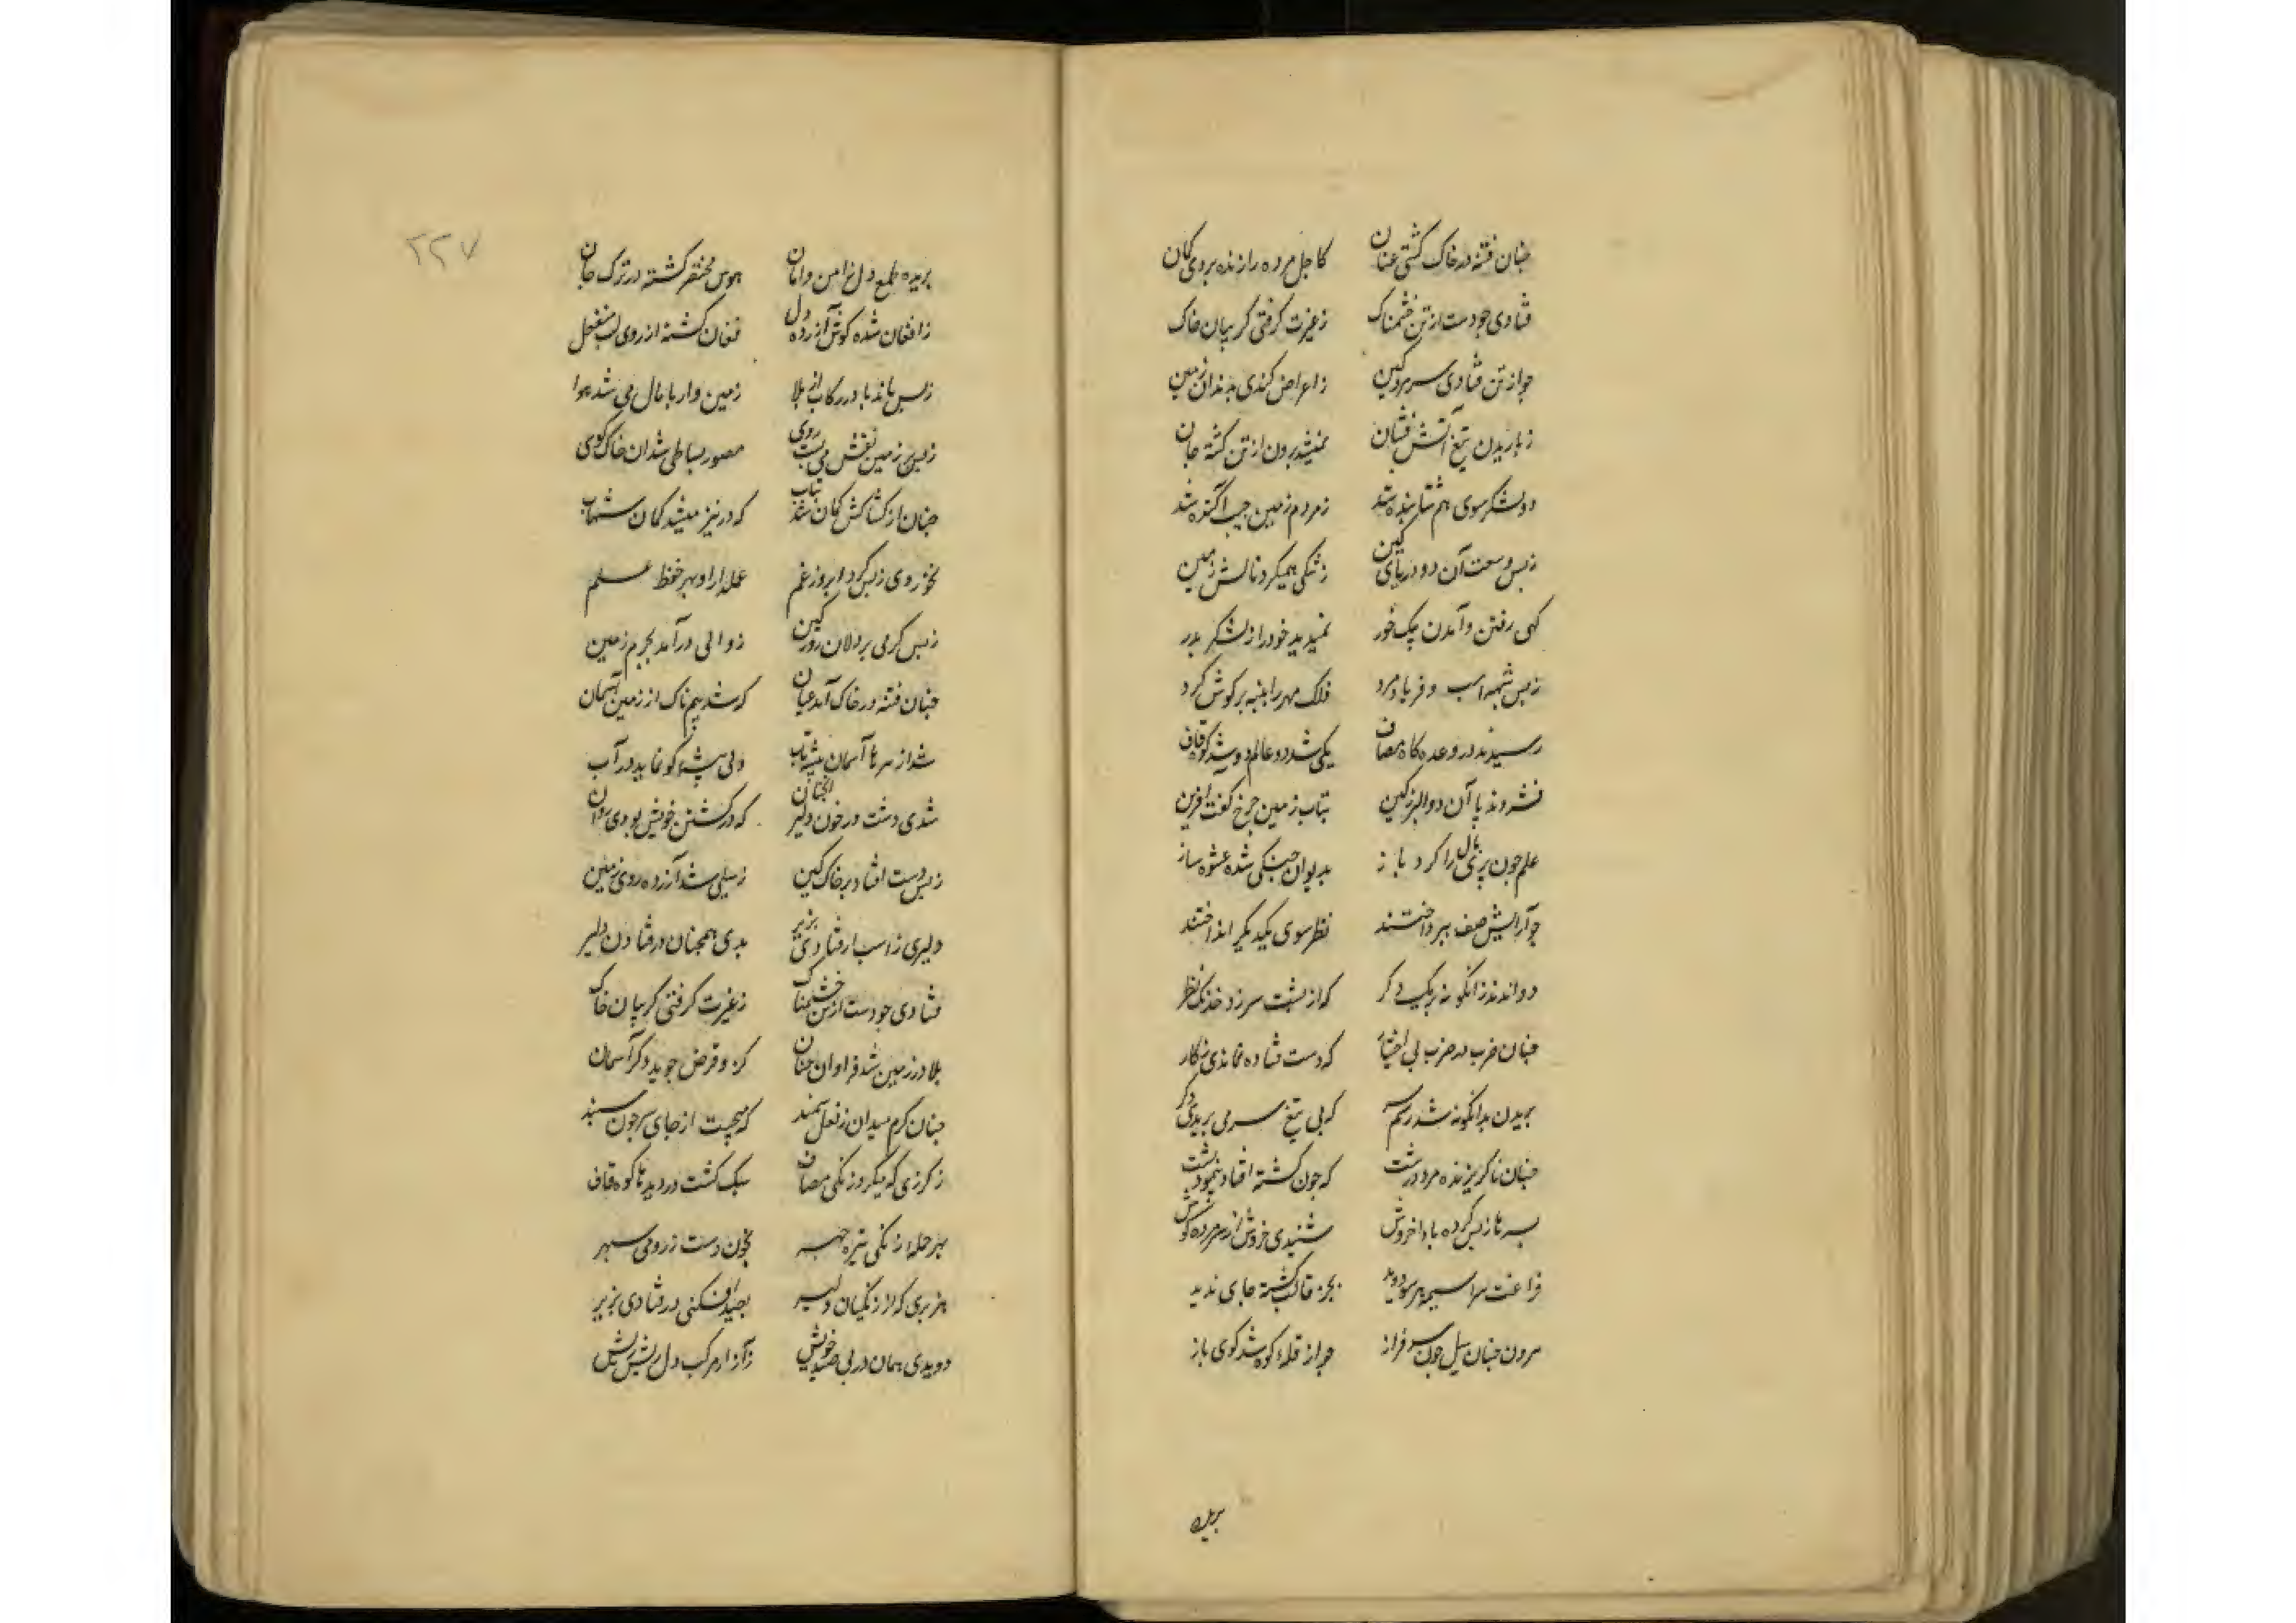 چنان فتنه در خاک کشتی عنان کاجل مرده را زنده بردی کمان
فتادی جو دست از تن خشمناک زغیرت گرفتی گریبان خاک
جو از تن فتادی سر مرد کین ز اعراض کندی بدندان زمین
ز باریدن تیغ آتش فشان نمیشد برون از تن کشته جان
دو لشکر سوی هم شتابنده شد ز مردم زمین جیب آکنده شد
ز بس وسعت آن دو دریای کین ز تنگی همیکرد نالش زمین
کهی رفتن و آمدن یک خور نمیدید خود را ز لشکر بدر
ز بس شیهه اسب و فریاد مرد فلک مهر را پنبه بر گوش کرد
رسیدند در وعده گاه مصاف یکی شد دو عالم دو شد کوه قاف
فشردند پا آن دو البرز کین بتاب زمین چرخ گفت آفرین
علم جون پری بال را کرد باز بدیوان جنگی شده عشوه ساز
جو آرایش صف بپرداختند نظر سوی یکدیگر انداختند
دواندند زانگونه بر یکدگر که از پشت سر زد خدنگ نظر
چنان ضرب در ضرب بی اختیار که دست فتاده نماندی ز کار
بریدن بدانگونه شد رسم که بی تیغ سر می بریدی دگر
چنان ناگریزنده مرد درشت که جون کشته افتاد ننمود پشت
بسرها ز بس کرده باد خروش شنیدی خروش از سر مرده گوش
فراغت سراسیمه هر سو دوید بجز قالب کشته جای ندید
سرون چنان پیل جون سرفراز جو از قله کوه شد کوی باز
بریده
۲۲۷
بریده طمع دل ز امن و امان هوس مختصر گشته در ترک جان
ز افغان شده گوش آزرده دل فغان گشته از روی لب منفعل
ز بس ماند پا در رکاب از بلا زمین وار پامال می شد هوا
ز بس بر زمین نقش می بست روی مصور بساطی شد آن خاک کوی
چنان از کشاکش کمان شد بتاب که در تیر میشد کمان شهاب
زوالی درآمد بجرم زمین ز بس گرمی پردلان روز کین
چنان فتنه در خاک آمد عیان که شد بیمناک از زمین آسمان
شد از سرها آسمان ولی کو نماید در آب
شدی دست در خون دلیر آنچنان که در کشتن خویش بودی روان
ز بس دست افتاد بر خاک کین ز سیلی شد آزرده روی زمین
دلیری ز اسب ار فتادی بزیر بدی همچنان در فتادن دلیر
فتادی جو دست از تن خشمناک ز غیرت گرفتی گریبان خاک
بلا در زمین شد فراوان چنان کزو قرض جوید دگر آسمان
چنان گرم میدان ز نعل سمند که میجست از جای سر جون سپند
ز گرزی که میکرد زنگی مصاف سبک گشت در دیدها کوه قاف
بهر حمله زنگی تیره چهر بخون دست ز رومی سپهر
هزبری که از زنگیان دلیر بصید افکنی در فتادی بزیر
دویدی همان در پی صید خویش ز آزار مرکب دل ریش ریش